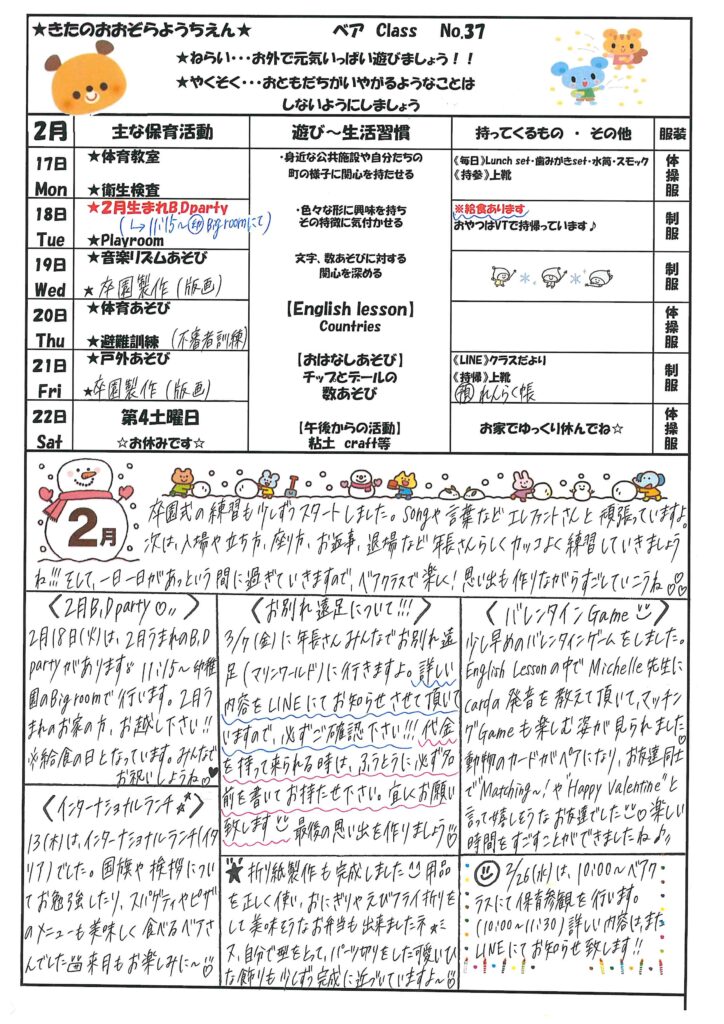 ★きたのおおぞらようちえん★ ベア Class No.37
★ねらい・・・お外で元気いっぱい遊びましょう！！
★やくそく・・・おともだちがいやがるようなことは
しないようにしましょう
2月 主な保育活動 遊び～生活習慣 持ってくるもの ・ その他 服装
17日 Mon
★体育教室
★衛生検査
・身近な公共施設や自分たちの
町の様子に関心を持たせる
《毎日》Lunch set・歯みがきset・水筒・スモック
《持参》上靴
体操服
18日 Tue
★2月生まれB.Dparty
(↳11:15～㊥Big roomにて)
★Playroom
・色々な形に興味を持ち
その特徴に気付かせる
※給食あります
おやつはVTで持帰っています♪
制服
19日 Wed
★音楽リズムあそび
★卒園製作(版画)
文字、数あそびに対する
関心を深める
制服
20日 Thu
★体育あそび
★避難訓練(不審者訓練)
【English lesson】
Countries
体操服
21日 Fri
★戸外あそび
★卒園製作(版画)
【おはなしあそび】
チップとデールの
数あそび
《LINE》クラスだより
《持帰》上靴
れんらく帳
制服
22日 Sat
第4土曜日
☆お休みです☆
【午後からの活動】
粘土 craft等
お家でゆっくり休んでね☆
体操服
2月
卒園式の練習も少しずつスタートしました。Songや言葉など エレファントさんと頑張っていますよ。
次は、入場や立ち方、座り方、お返事、退場など 年長さんらしくカッコよく練習していきましょう
ね!!! そして、一日一日があっという間に過ぎていきますので、ベアクラスで楽しく！思い出も作りながらすごしていこうね♡♡
〈2月B.Dparty♡〉
2月18日(火)は、2月うまれのB.D
partyがあります。11:15～幼稚
園のBig roomで行います。2月う
まれのお家の方、お越し下さい!!
※給食の日となっています。みんなで
お祝いしましょうね♥
〈お別れ遠足について!!!〉
3/7(金)に年長さんみんなでお別れ遠
足(マリンワールド)に行きますよ。詳しい
内容をLINEにてお知らせさせて頂いて
いますので、必ずご確認下さい!!! 代金
を持って来られる時は、ふうとうに必ず名
前を書いてお持たせ下さい。宜しくお願い
致します 最後の思い出を作りましょう♡
〈バレンタインGame〉
少し早めのバレンタインゲームをしました。
English Lessonの中でMichelle先生に
cardや発音を教えて頂いて、マッチン
グGameも楽しむ姿が見られました♡
動物のカードがペアになり、お友達同士
で"Matching～!"や"Happy Valentine"と
言って嬉しそうなお友達でした 楽しい
時間をすごすことができましたね♪
〈インターナショナルランチ★〉
13(木)は、インターナショナルランチ(イタ
リア)でした。国旗や挨拶につい
てお勉強したり、スパゲティやピザ
のメニューも美味しく食べるベアさ
んでした 来月もお楽しみに～♡
★折り紙製作も完成しました 用品
を正しく使い、おにぎりやえびフライ折りを
して美味そうなお弁当も出来ましたネ☆ミ
ス、自分で型をとって、パーツ切りをした可愛いひ
な飾りも少しずつ完成に近づいていますよ～♡
2/26(水)は、10:00～ベアク
ラスにて保育参観を行います。
(10:00～11:30) 詳しい内容は、また
LINEにてお知らせ致します!!